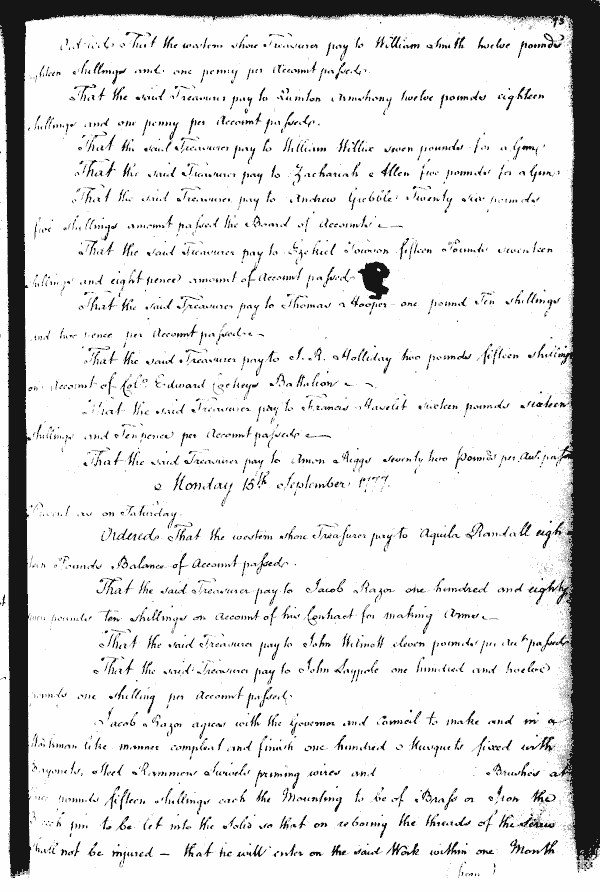 93
Ordered That the western shore Treasurer pay to William Smith twelve pounds
eighteen shillings and one penny per Account passed.
That the said Treasurer pay to Armstrong twelve pounds eighteen
shillings and one penny per Account passed.
That the said Treasurer pay to William Willie seven pounds for a Gun,
That the said Treasurer pay to Zachariah Allen five pounds for a Gun
That the said Treasurer pay to Andrew Gribble Twenty six pounds
five shillings amount passed the Board of Accounts —
That the said Treasurer pay to Ezekiel Towson fifteen Pounds seventeen
shillings and eight pence amount of Account passed
That the said Treasurer pay to Thomas Hooper one pound Ten shillings
and two pence per Account passed —
That the said Treasurer pay to J. R. Holliday two pounds fifteen shillings
on Account of Colo. Edward Cockeys Battalion —
That the said Treasurer pay to Francis sixteen pounds sixteen
shillings and Tenpence per Account passed —
That the said Treasurer pay to Amon Riggs seventy two pounds per Acct. passed
Monday 15th September 1777.
Present as on Saturday.
Ordered That the western shore Treasurer pay to Aquila Randall eigh
teen Pounds Balance of Account passed.
That the said Treasurer pay to Jacob Razor one hundred and eighty
seven pounds ten shillings on Account of his Contract for making Arms —
That the said Treasurer pay to John Wilmott eleven pounds per Acct. passed
That the said Treasurer pay to John Laypole one hundred and twelve
pounds one shilling per Account passed.
Jacob Razor agrees with the Governor and Council to make and in a
Workman like manner compleat and finish one hundred Musquets fixed with
Bayonets, Steel Rammers Swivels priming wires and Brushes at
pounds fifteen shillings each the Mounting to be of Brass or Iron the
Breech pin to be let into the Solid so that on reboring the threads of the Screw
shall not be injured — that he will enter on the said Work within one Month
from